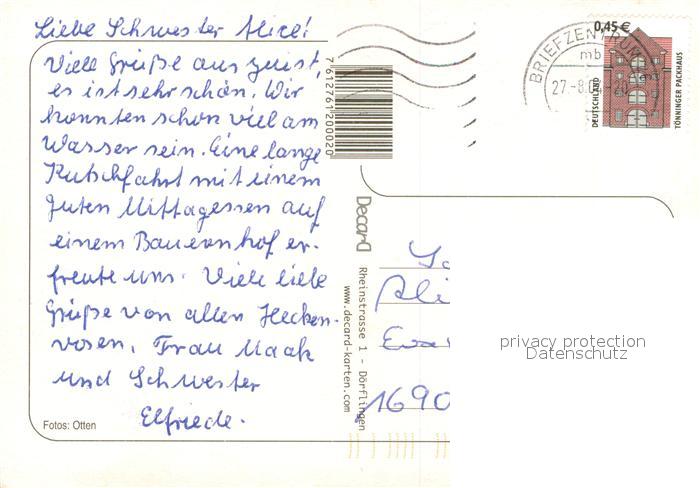 Liebe Schwester Alice!
Viele Grüße aus zuist,
es ist sehr schön. Wir
konnten schon viel am
Wasser sein. Eine lange
Kutschfahrt mit einem
guten Mittagessen auf
einem Bauernhof er-
freute uns. Viele liebe
Grüße von allen Hecken-
rosen, Frau Maak
und Schwester
Elfriede.
Fotos: Otten
7612761200020
Decard
Rheinstrasse 1 - Dörflingen
www.decard-karten.com
BRIEFZENTRUM
mb
27.-8.0
0,45 €
DEUTSCHLAND
TÖNNINGER PACKHAUS
Ali
1690
privacy protection
Datenschutz